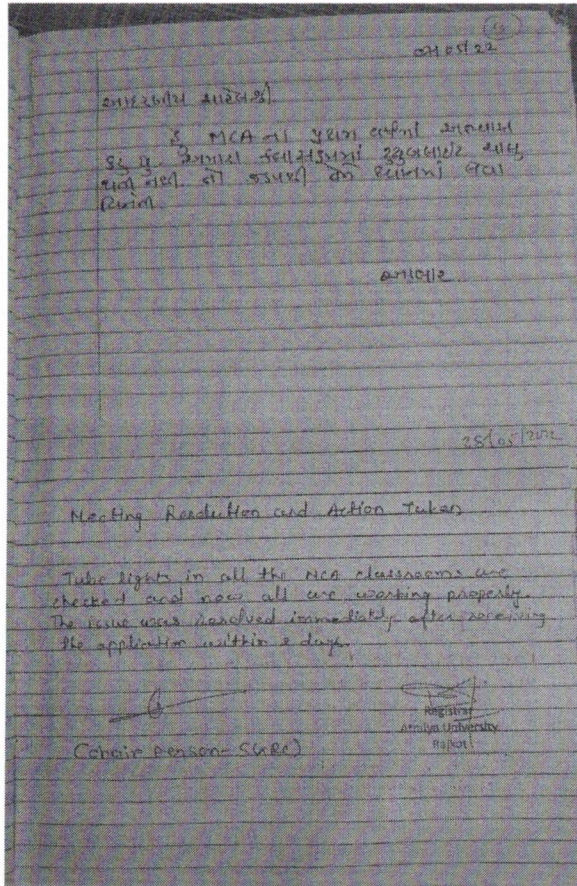 05/22
આદરણીય સાહેબશ્રી
હું MCA ના પ્રથમ વર્ષનો અભ્યાસ
કરું છું. અમારા ક્લાસરૂમમાં ટ્યુબલાઈટ ચાલુ
થતી નથી તો
વિનંતી
આભાર
25/05/2022
Meeting Resolution and Action Taken
Tube lights in all the MCA classrooms are
checked and now all are working properly.
The issue was resolved immediatly after receiving
the application within 2 days.
(Chair person - SGRC)
Registrar
Atmiya University
Rajkot